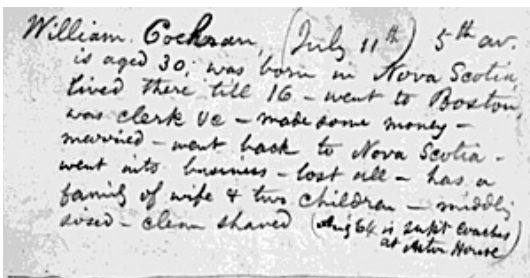 William Cochran, (July 11th) 5th av.
is aged 30; was born in Nova Scotia
lived there till 16 – went to Boston,
was clerk &c – made some money –
married – went back to Nova Scotia –
went into business – lost all – has a
family of wife & two children – middling
sized – clean shaved (Aug 64 is supt Coaches
at Astor House)